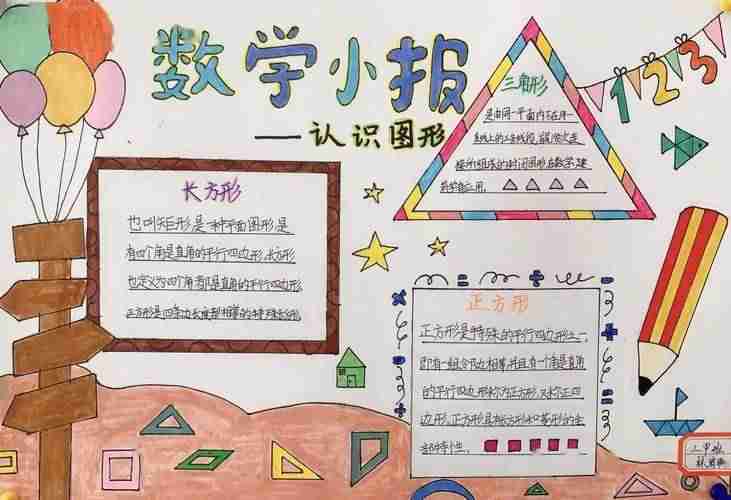 数学小报
—认识图形
1 2 3
三角形
是由同一平面内不在同一
直线上的三条线段首尾顺次连
接所组成的封闭图形,在数学、建
筑学有应用。
长方形
也叫矩形,是一种平面图形,是
有四个角是直角的平行四边形,长方形
也定义为四个角都是直角的平行四边形,
正方形是四条边长度都相等的特殊长形
正方形
正方形是特殊的平行四边形之一,
即有一组邻边相等,并且有一个角是直角
的平行四边形称为正方形,又称正四
边形,正方形具有长方形和菱形的全
部特性。